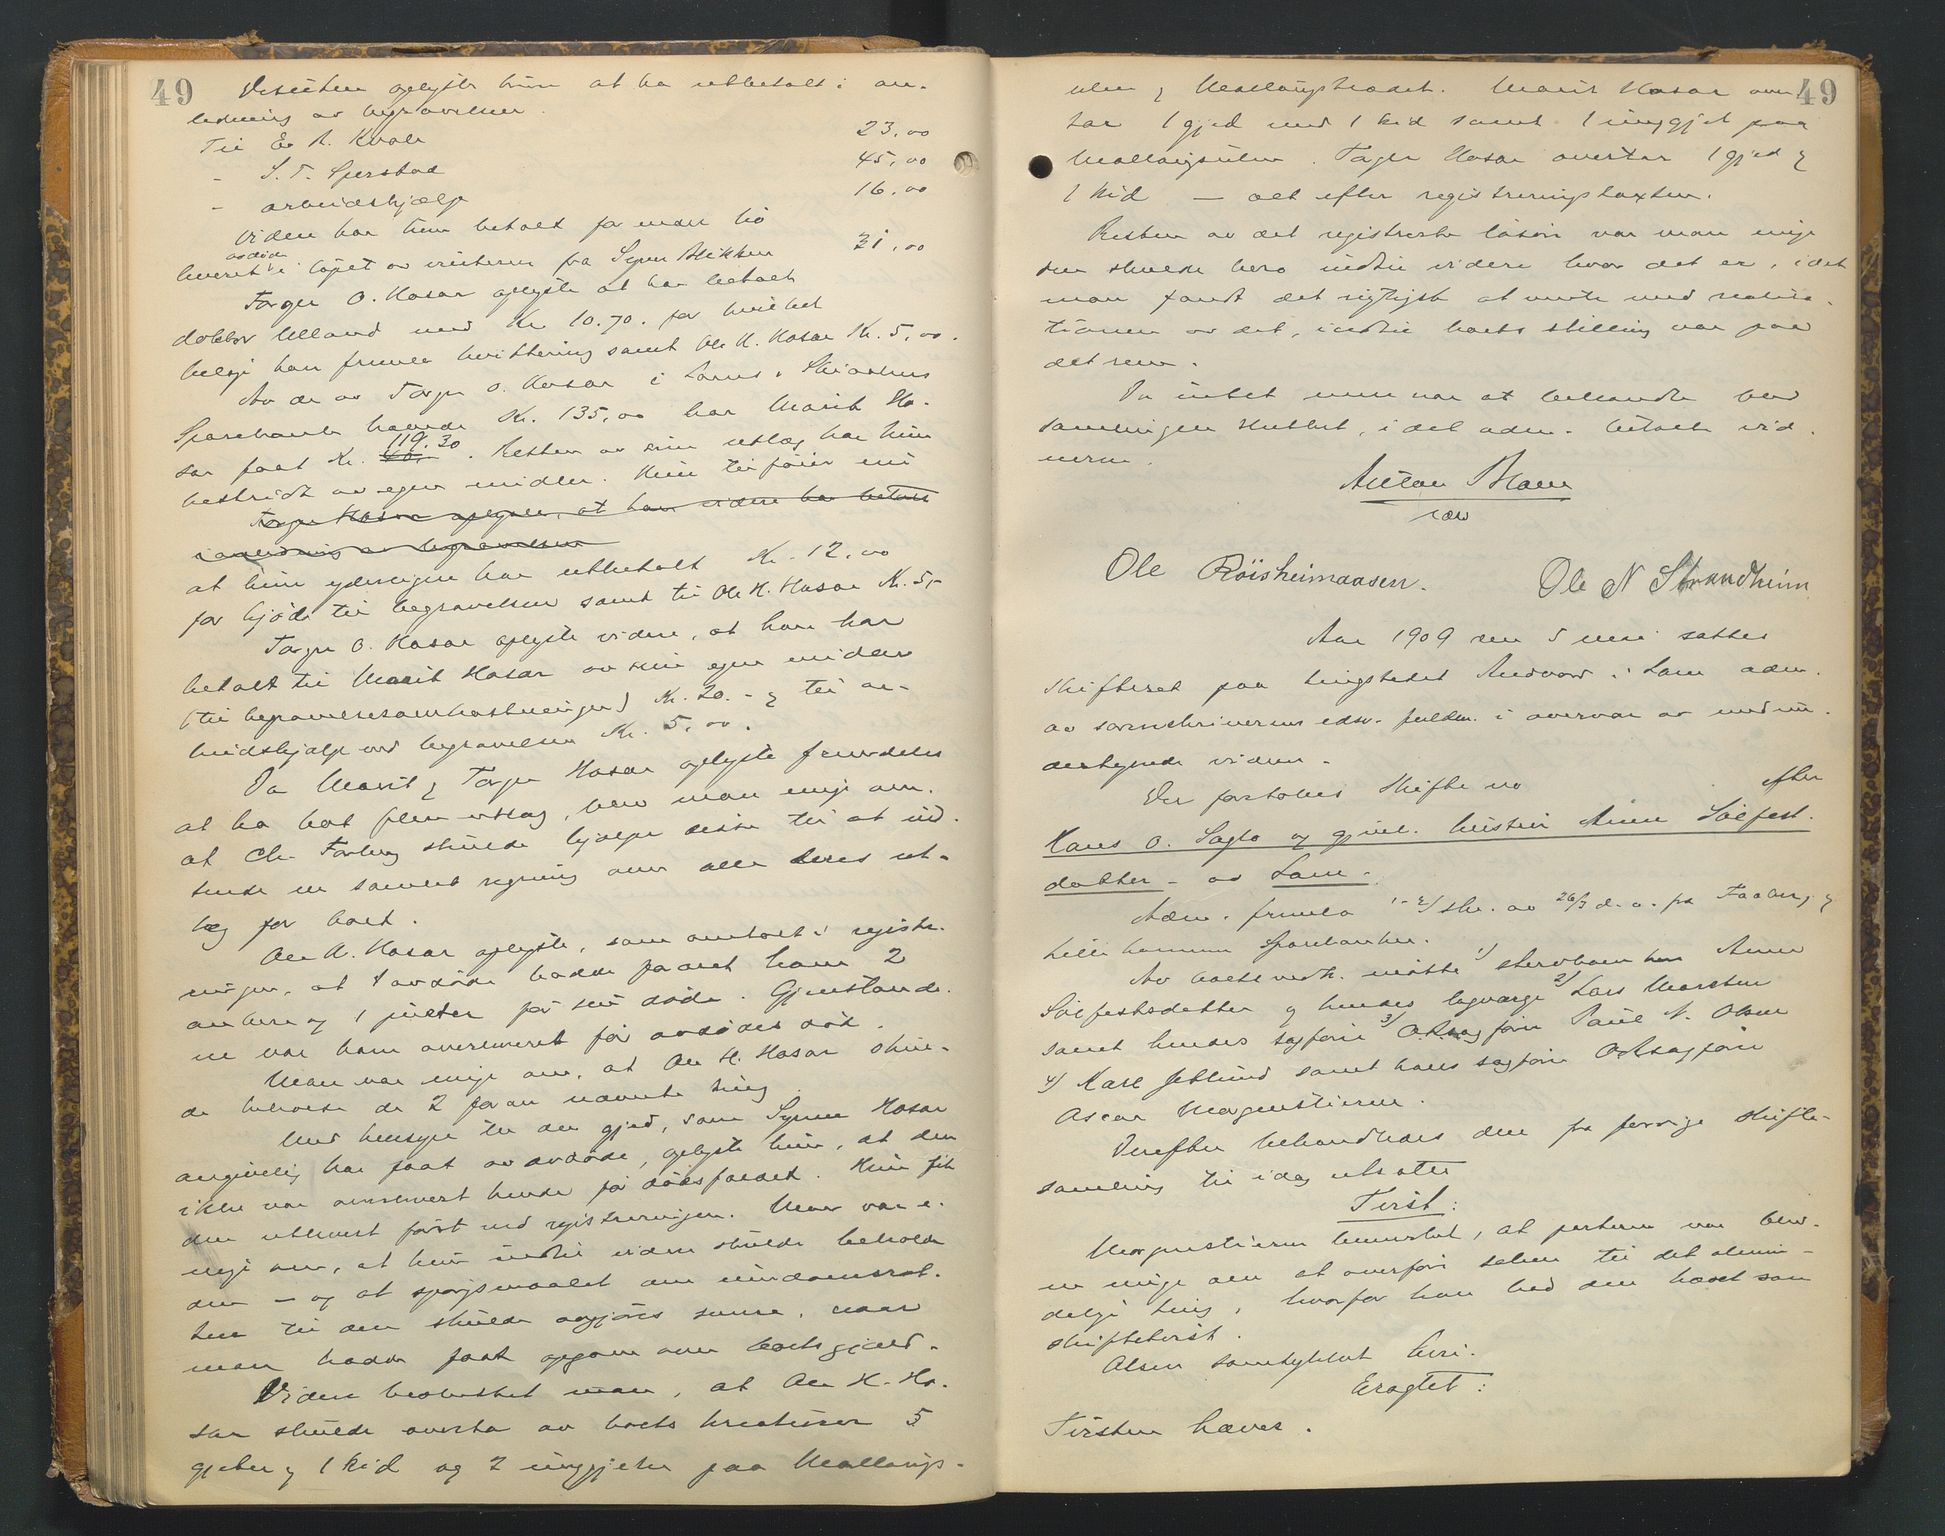 49
Desuten oplyste hun at ha utbetalt i an-
ledning av begravelsen
Til E. A. Kvale 23,00
- S. T. Sperstad 45,00
- arbeidshjælp 16,00
Videre har hun betalt for endel hø
avdøde
leveret i løpet av vinteren fra Syver Blikken 31,00
Torger O. Hosar oplyste at ha betalt
doktor Ulland med Kr 10.70. for hvilket
beløp han fremla kvittering samt Ole H. Hosar Kr. 5,00.
Av de av Torger O. Hosar i Loms & Skiaakers
Sparebank hævede Kr. 135,00 har Marit Ho-
sar faat Kr. 119.30. Resten av sine utlæg har hun
bestridt av egne midler. Hun tilføier nu
Torger Hosar oplyser, at han videre har betalt
i anledning av begravelsen
at hun yderligere har utbetalt Kr. 12,00
for kjød til begravelsen samt til Ole H. Hosar Kr. 5,-
Torger O. Hosar oplyste videre, at han har
betalt til Marit Hosar av sine egne midler
(til begravelsesomkostninger) Kr. 20.- og til ar-
beidshjælp ved begravelsen Kr. 5,00.
Da Marit og Torger Hosar oplyste fremdeles
at ha hat flere utlæg, blev man enige om,
at Chr. Forberg skulde hjælpe disse til at ind-
sende en samlet regning over alle deres ut-
læg for boet.
Ole H. Hosar oplyste, som omtalt i registre-
ringen, at avdøde hadde foræret ham 2
ankere og 1 før sin død. Gjenstande-
ne var ham overleveret før avdødes død.
Man var enige om, at Ole H. Hosar skul-
de beholde de 2 foran nævnte ting
Med hensyn til den gjed, som Synne Hosar
angivelig har faat av avdøde, oplyste hun, at den
ikke var overlevert hende før dødsfaldet. Hun fik
den utlevert først ved registreringen. Man var e-
nige om, at hun indtil videre skulde beholde
den - og at spørsmaalet om eiendomsret-
ten til den skulde avgjøres senere, naar
man hadde faat opgave over boets gjæld.
Videre besluttet man, at Ole H. Ho-
sar skulde overta av boets kreaturer 5
gjeter og 1 kid og 2 unggjeter paa Mallaugs-
49
ulen og Mallaugstrædet. Marit Hosar over-
tar 1 gjed med 1 kid samt 1 unggjet paa
Mallaugsulen. Torger Hosar overtar 1 gjed og
1 kid - alt efter registreringstaxten.
Resten av det registrerte løsøre var man enige
om skulde bero indtil videre hvor det er, idet
man fandt det rigtigst at vente med realisa-
tionen av det, indtil boets stilling var paa
det rene.
Da intet mere var at behandle blev
samlingen sluttet, idet adm. betalte vid-
nerne.
Anton Blom
cds
Ole Røisheimaasen. Ole N Strandheim
Aar 1909 den 5 mai sattes
skifteret paa tingstedet Andvord i Lom adm.
av sorenskriverens edsv. fuldm. i overvær av undni-
dertegnede vidner.
Der foretoges skifte no efter
Hans O. Sagle og gjenl. hustru Anne Sølfest-
datter - av Lom -
Adm. fremla 1-2/ skr. av 26/3 d. a. fra Faaberg og
Lillehammer Sparebanker.
Av boets vedk. møtte 1) stervboenken Anne
Sølfestsdatter og hendes lagværge 2) Lars Marstein
samt hendes sagfører 3) O.r.sagfører Paul N. Olsen
4) Karl Jetlund samt hans sagfører O.r.sagfører
Oscar Morgenstierne.
Derefter behandledes den fra forrige skifte-
samling til idag utsatte
Tvist:
Morgenstierne bemerket, at parterne var blev-
ne enige om at overføre saken til det almin-
delige ting, hvorfor han bad den hævet som
skiftetvist.
Olsen samtykket heri.
Eragtet:
Tvisten hæves.